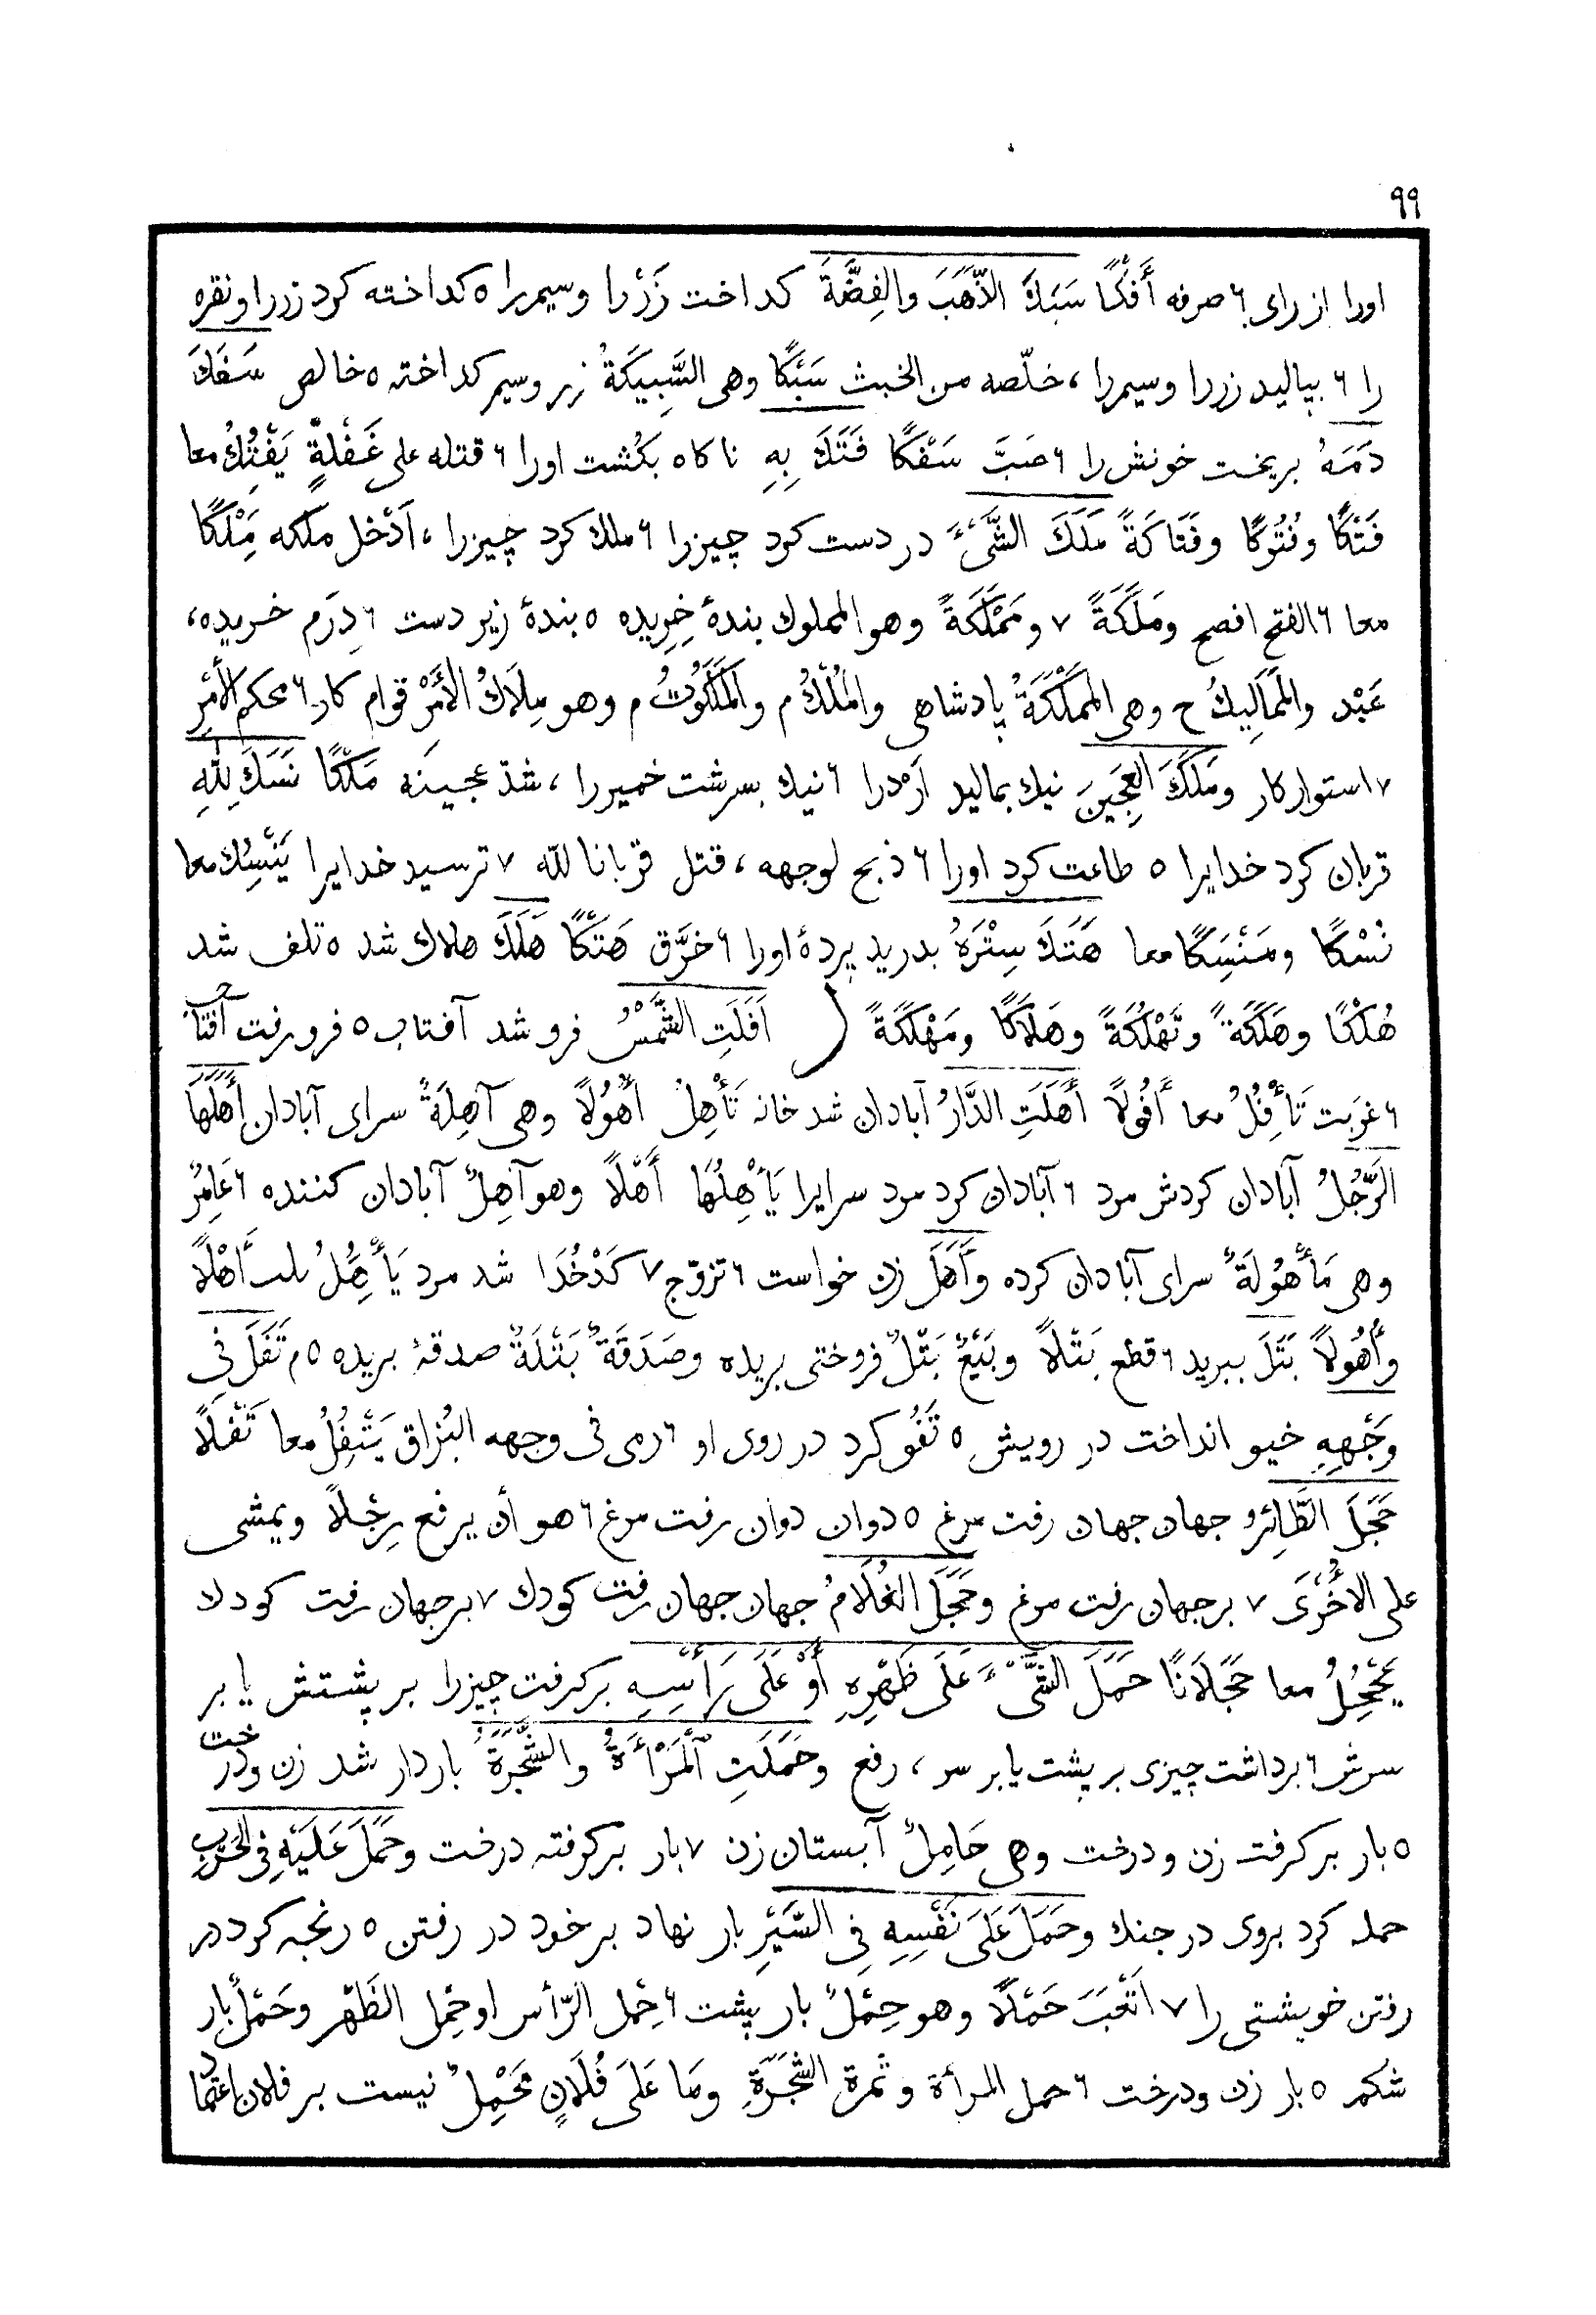 ٩٩
اورا از رای ٦ صرفه أَفْكًا سَبَكَ الذَّهَبَ والفِضَّةَ كداخت زَرْرا وسیمرا ٥ كداخته كرد زررا ونقره
را ٦ بپالید زررا وسیمرا ، خلّصه من الخبث سَبْكًا وهی السَّبِیكَةُ زر وسیم كداخته ٥ خالص سَفَكَ
دَمَهُ بریخت خونش را ٦ صَبَّ سَفْكًا فَتَكَ بِهِ ناكاه بكُشت اورا ٦ قتله علی غَفْلةٍ یَفْتِكُ معا
فَتْكًا وفُتُوكًا وفَتَاكَةً مَلَكَ الشَّیْءَ در دست كرد چیزرا ٦ ملك كرد چیزرا ، اَدْخل ملكه مَِلْكًا
معا ٦ الفتح افصح ومَلَكَةً ٧ ومَمْلَكَةً وهو المملوك بندهٔ خریده ٥ بندهٔ زیر دست ٦ دِرَم خریده ،
عَبْد والمَمَالِیكُ ح وهی المَمْلَكَةُ پادشاهی والمُلْكُ م والمَلَكُوتُ م وهو مِلَاكُ الأَمْرِ قوام كار ٦ محكم الأمْرِ
٧ استوار كار ومَلَكَ العَجِینَ نیك بمالید آرْدرا ٦ نیك بسرشت خمیررا ، شدّ عجینَه مَلْكًا نَسَكَ لِلّٰهِ
قربان كرد خدایرا ٥ طاعت كرد اورا ٦ ذبح لوجهه ، قتل قربانا للّه ٧ ترسید خدایرا یَنْسِكُ معا
نُسْكًا ومَنْسَِكًا معا هَتَكَ سِتْرَهُ بدرید پردهٔ اورا ٦ خرَّق هَتْكًا هَلَكَ هلاك شد ٥ تلف شد
هُلْكًا وهَلَكَةً وتَهْلُكَةً وهَلَاكًا ومَهْلَكَةً ل اَفَلَتِ الشَّمْسُ فروشد آفتاب ٥ فرورفت آفتاب
٦ غرَبت تَأْفِلُ معا أُفُولًا أَهَلَتِ الدَّارُ آبادان شد خانه تَأْهِلُ أُهُولًا وهی آهِلَةٌ سرای آبادان أَهَلَهَا
الرَّجُلُ آبادان كردش مرد ٦ آبادان كرد مرد سرایرا یَأْهِلُهَا أَهْلًا وهو آهِلٌ آبادان كننده ٦ عَامِرٌ
وهی مَأْهُولَةٌ سرای آبادان كرده وأَهَلَ زن خواست ٦ تزوّج ٧ كَدْخُدَا شد مرد یَأْهُِلُ أَهْلًا
وأُهُولًا بَتَلَ ببرید ٦ قطع بَتْلًا وبَیْعٌ بَتْلٌ فروختی بریده وصَدَقَةٌ بَتْلَةٌ صدقهٔ بریده ٥ م تَفَلَ فِی
وَجْهِهِ خیو انداخت در رویش ٥ تَفُو كرد در روی او ٦ رمی فی وجهه البُزاق یَتْفِلُ معا تَفْلًا
حَجَلَ الطَّائِرُ جهان جهان رفت مرغ ٥ دوان دوان رفت مرغ ٦ هو أن یرفع رِجْلاً ویمشی
علی الاُخْرَی ٧ برجهان رفت مرغ وحَجَلَ الغُلَامُ جهان جهان رفت كودك ٧ برجهان رفت كودك
یَحْجُِلُ معا حَجَلَانًا حَمَلَ الشَّیْءَ عَلَی ظَهْرِهِ أَوْ عَلَی رَأْسِهِ بركرفت چیزرا بر پشتش یا بر
سرش ٦ برداشت چیزی بر پشت یا بر سر ، رفع وحَمَلَتِ ٱلْمَرْأَةُ والشَّجَرَةُ باردار شد زن ودرخت
٥ بار بركرفت زن ودرخت وهی حَامِلٌ آبستان زن ٧ بار بركرفته درخت وحَمَلَ عَلَیْهِ فِی الحَرْبِ
حمله كرد بروی در جنك وحَمَلَ عَلَی نَفْسِهِ فِی السَّیْرِ بار نهاد بر خود در رفتن ٥ رنجه كرد در
رفتن خویشتی را ٧ اَتْعَبَ حَمْلًا وهو حِمْلٌ بار پشت ٦ حِمْل الرّأس او حِمْل الظَهْر وحَمْلٌ بار
شكم ٥ بار زن ودرخت ٦ حمل المرأة وثمرة الشَّجَرَةِ ومَا عَلَی فُلَانٍ مَحْمِلٌ نیست بر فلان اعتماد